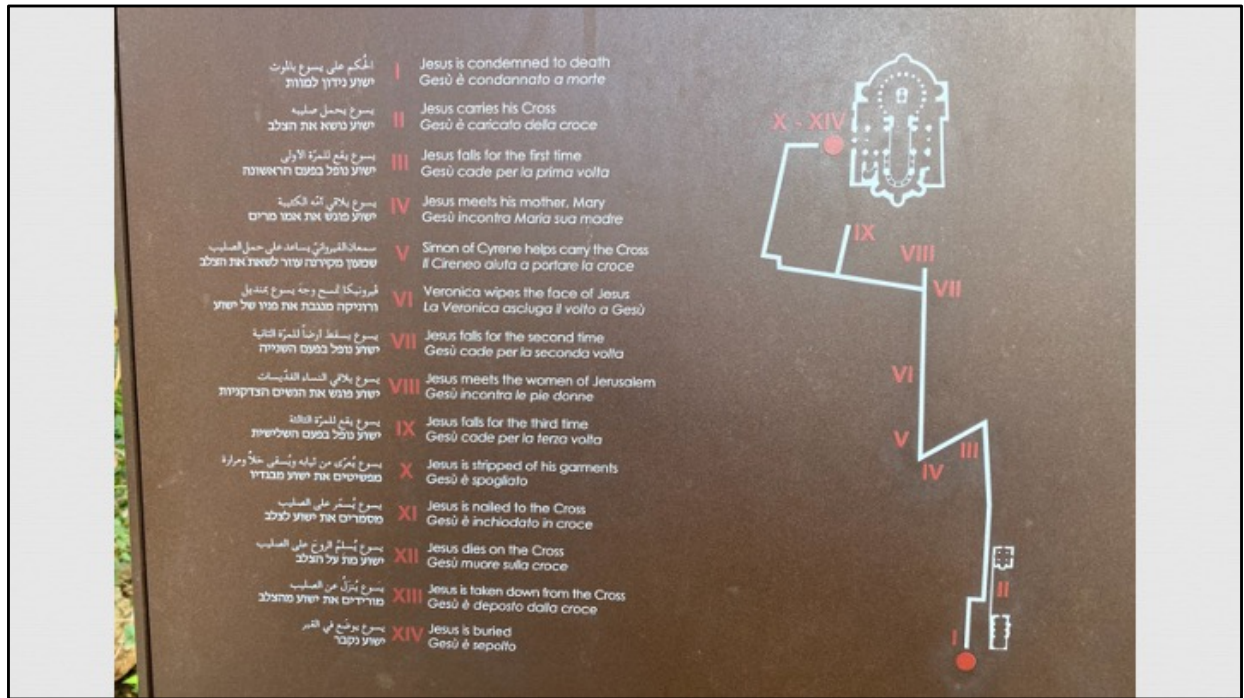 الحُكم على يسوع بالموت
ישוע נידון למוות
I
Jesus is condemned to death
Gesù è condannato a morte
يسوع يحمل صليبه
ישוע נושא את הצלב
II
Jesus carries his Cross
Gesù è caricato della croce
يسوع يقع للمرّة الأولى
ישוע נופל בפעם הראשונה
III
Jesus falls for the first time
Gesù cade per la prima volta
يسوع يلاقي أمّه الكئيبة
ישוע פוגש את אמו מרים
IV
Jesus meets his mother, Mary
Gesù incontra Maria sua madre
سمعان القيرواني يساعد على حمل الصليب
שמעון מקירנה עוזר לשאת את הצלב
V
Simon of Cyrene helps carry the Cross
Il Cireneo aiuta a portare la croce
ڤيرونيكا تمسح وجه يسوع بمنديل
ורוניקה מנגבת את פניו של ישוע
VI
Veronica wipes the face of Jesus
La Veronica asciuga il volto a Gesù
يسوع يسقط أرضاً للمرّة الثانية
ישוע נופל בפעם השנייה
VII
Jesus falls for the second time
Gesù cade per la seconda volta
يسوع يلاقي النساء القدّيسات
ישוע פוגש את הנשים הצדקניות
VIII
Jesus meets the women of Jerusalem
Gesù incontra le pie donne
يسوع يقع للمرّة الثالثة
ישוע נופל בפעם השלישית
IX
Jesus falls for the third time
Gesù cade per la terza volta
يسوع يُعرّى من ثيابه ويُسقى خلاًّ ومرارة
מפשיטים את ישוע מבגדיו
X
Jesus is stripped of his garments
Gesù è spogliato
يسوع يُسمّر على الصليب
מסמרים את ישוע לצלב
XI
Jesus is nailed to the Cross
Gesù è inchiodato in croce
يسوع يُسلمُ الروحَ على الصليب
ישוע מת על הצלב
XII
Jesus dies on the Cross
Gesù muore sulla croce
يسوع يُنزَلُ عن الصليب
מורידים את ישוע מהצלב
XIII
Jesus is taken down from the Cross
Gesù è deposto dalla croce
يسوع يوضَع في القبر
ישוע נקבר
XIV
Jesus is buried
Gesù è sepolto
X - XIV
IX
VIII
VII
VI
V
III
IV
II
I